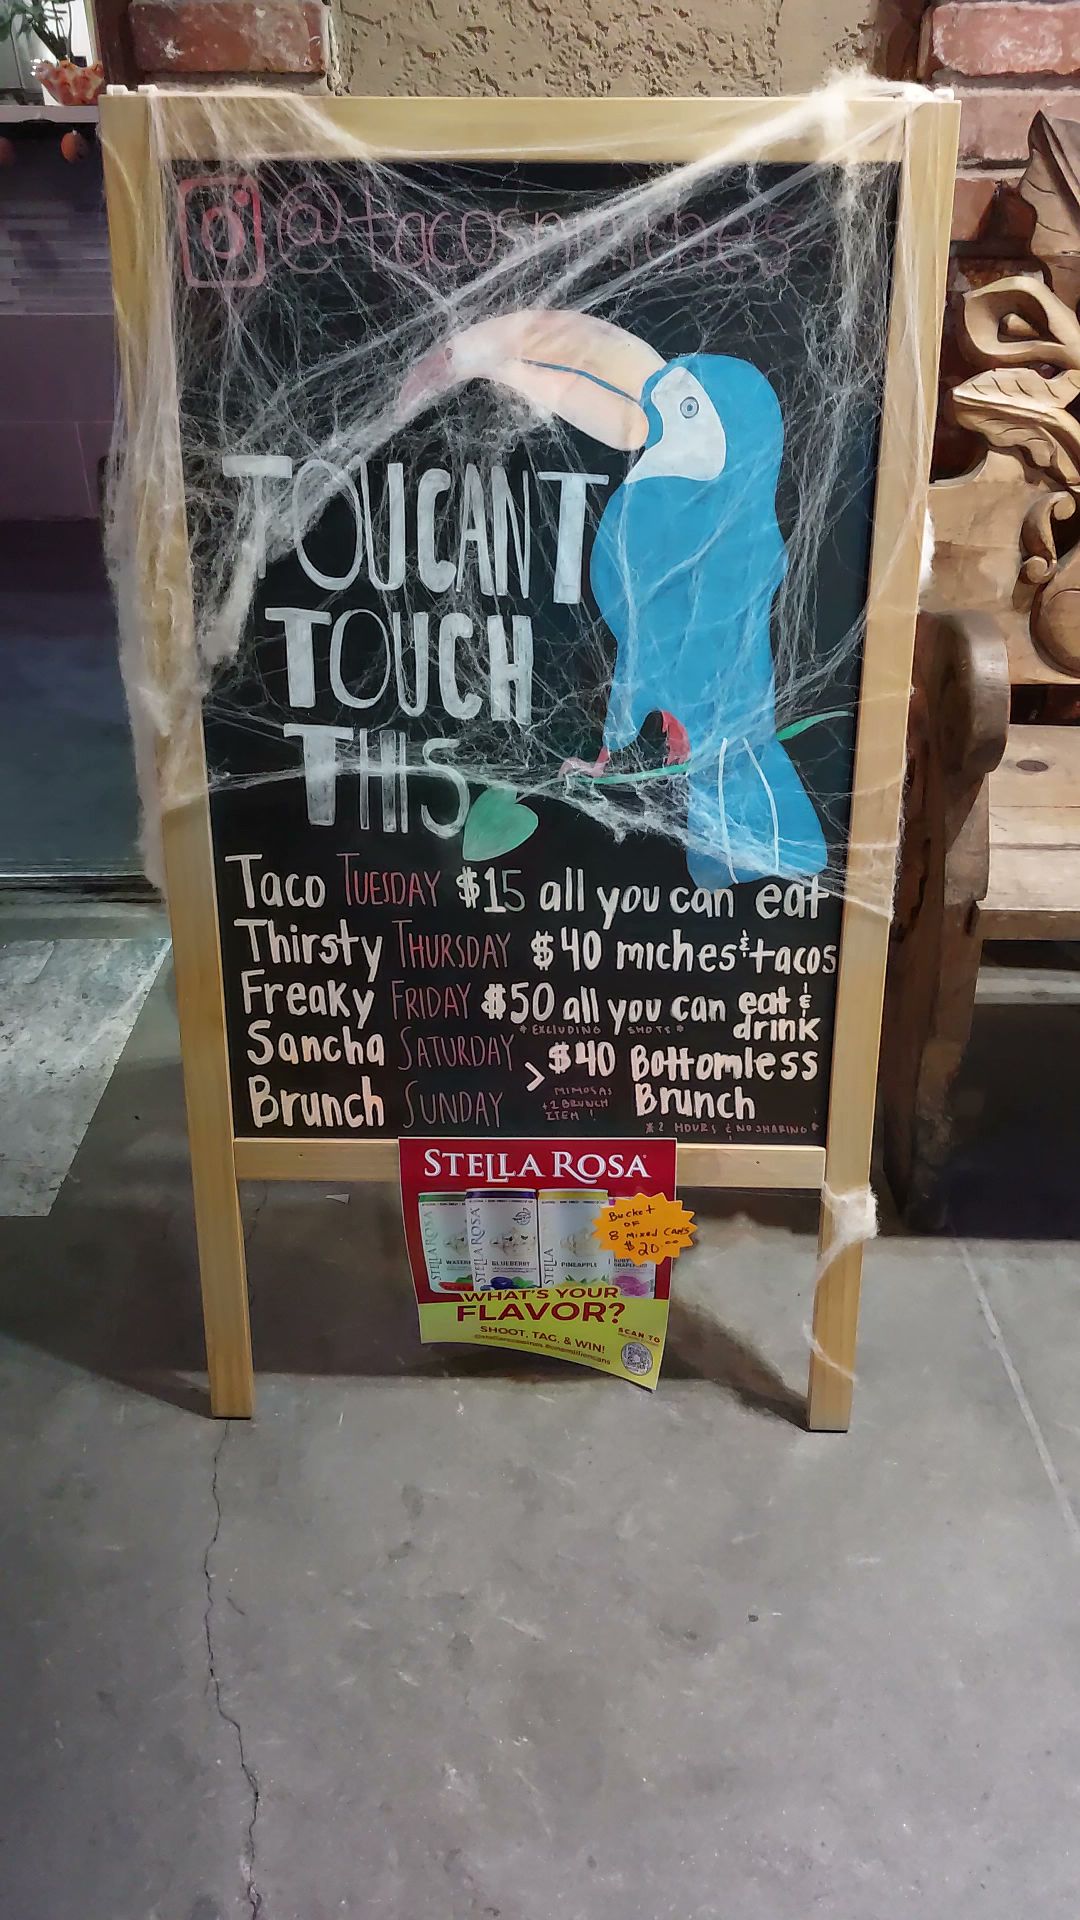 TOUCAN'T
TOUCH
THIS
Taco TUESDAY $15 all you can eat
Thirsty THURSDAY $40 miches & tacos
Freaky FRIDAY $50 all you can eat &
drink
* EXCLUDING SHOTS *
Sancha SATURDAY > $40 Bottomless
Brunch SUNDAY Brunch
MIMOSAS
+1 BRUNCH
ITEM !
* 2 HOURS & NO SHARING *
STELLA ROSA
STELLA ROSA
STELLA ROSA
STELLA
BLUEBERRY
PINEAPPLE
Bucket
OF
8 Mixed CANS
$20.00
WHAT'S YOUR
FLAVOR?
SHOOT, TAG, & WIN!
SCAN TO